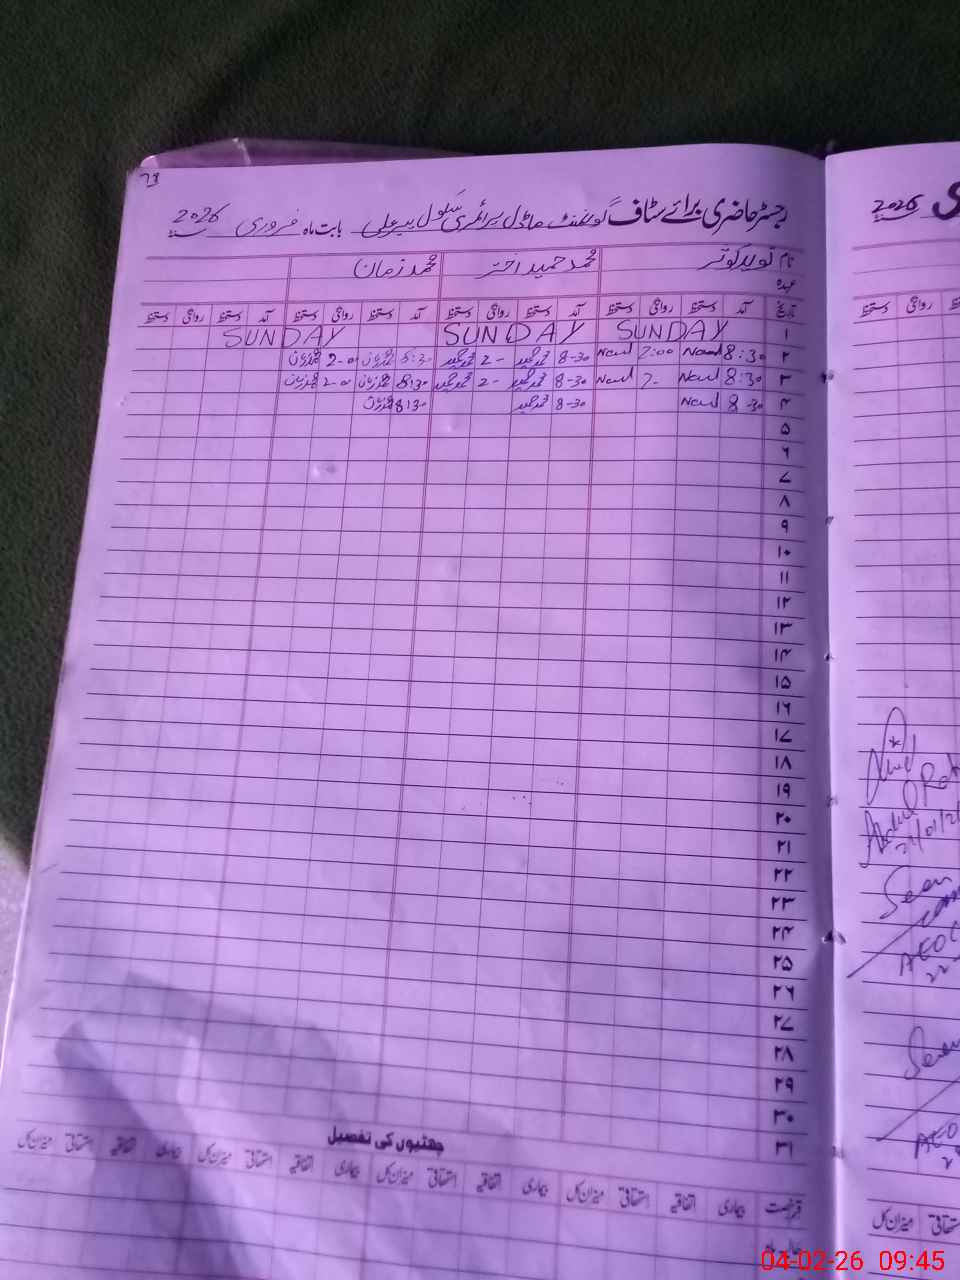 رجسٹر حاضری برائے سٹاف گورنمنٹ ماڈل پرائمری سکول پیر علی بابت ماہ فروری 2026
نام نوید کوثر محمد حمید اختر محمد زمان
عہدہ
تاریخ آمد دستخط روانگی دستخط آمد دستخط روانگی دستخط آمد دستخط روانگی دستخط آمد دستخط روانگی دستخط
۱ SUNDAY SUNDAY SUNDAY
۲ 8:30 Naveed 2:00 Naveed 8-30 محمد حمید 2- محمد حمید 8:30 محمد زمان 2-0 محمد زمان
۳ 8:30 Naveed 2- Naveed 8-30 محمد حمید 2- محمد حمید 8:30 محمد زمان 2-0 محمد زمان
۴ 8-30 Naveed 8-30 محمد حمید 8:30 محمد زمان
۵
۶
۷
۸
۹
۱۰
۱۱
۱۲
۱۳
۱۴
۱۵
۱۶
۱۷
۱۸
۱۹
۲۰
۲۱
۲۲
۲۳
۲۴
۲۵
۲۶
۲۷
۲۸
۲۹
۳۰
۳۱
چھٹیوں کی تفصیل
قسم رخصت بیماری اتفاقیہ استحقاقی میزان کل بیماری اتفاقیہ استحقاقی میزان کل بیماری اتفاقیہ استحقاقی میزان کل بیماری اتفاقیہ استحقاقی میزان کل
2026
روانگی دستخط
Seen
AEO
22
Seen
AEO
استحقاقی میزان کل
04-02-26 09:45